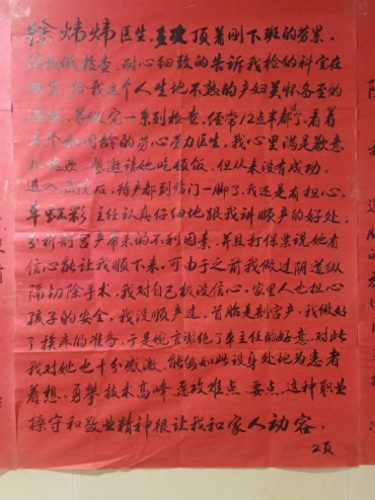 徐炜炜医生,多次顶着刚下班的劳累
给我做检查,耐心细致的告诉我检的科室在
哪里,给我这个人生地不熟的产妇莫怀备至的
温暖,等做完一系列检查,经常12点半都过了,看着
这个和同龄的劳心劳力医生,我心里满是歉意
和愧疚,想邀请她吃顿饭,但从未没有成功。
进入三院后,待产都到临门一脚了,我还是有担心,
车虹彩 主任认真仔细地跟我讲顺产的好处,
分析剖宫产带来的不利因素,并且打保票说她有
信心能让我顺下来,可由于之前我做过阴道纵
隔切除手术,我对自己极没信心,家里人也担心
孩子的安全,我没顺产过,首胎是剖宫产,我做好
了挨疼的准备,于是婉言谢绝了车主任的好意,对此
我对她也十分感激,能够如此设身处地为患者
着想,勇攀技术高峰,愿攻难点、要点,这种职业
操守和敬业精神很让我和家人动容。
2页